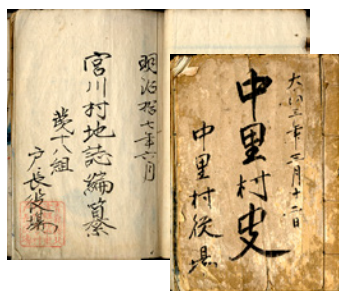 明治十七年六月
宮川村地誌編纂
第十八組
戸長役場
大正三年三月十二日
中里村史
中里村役場